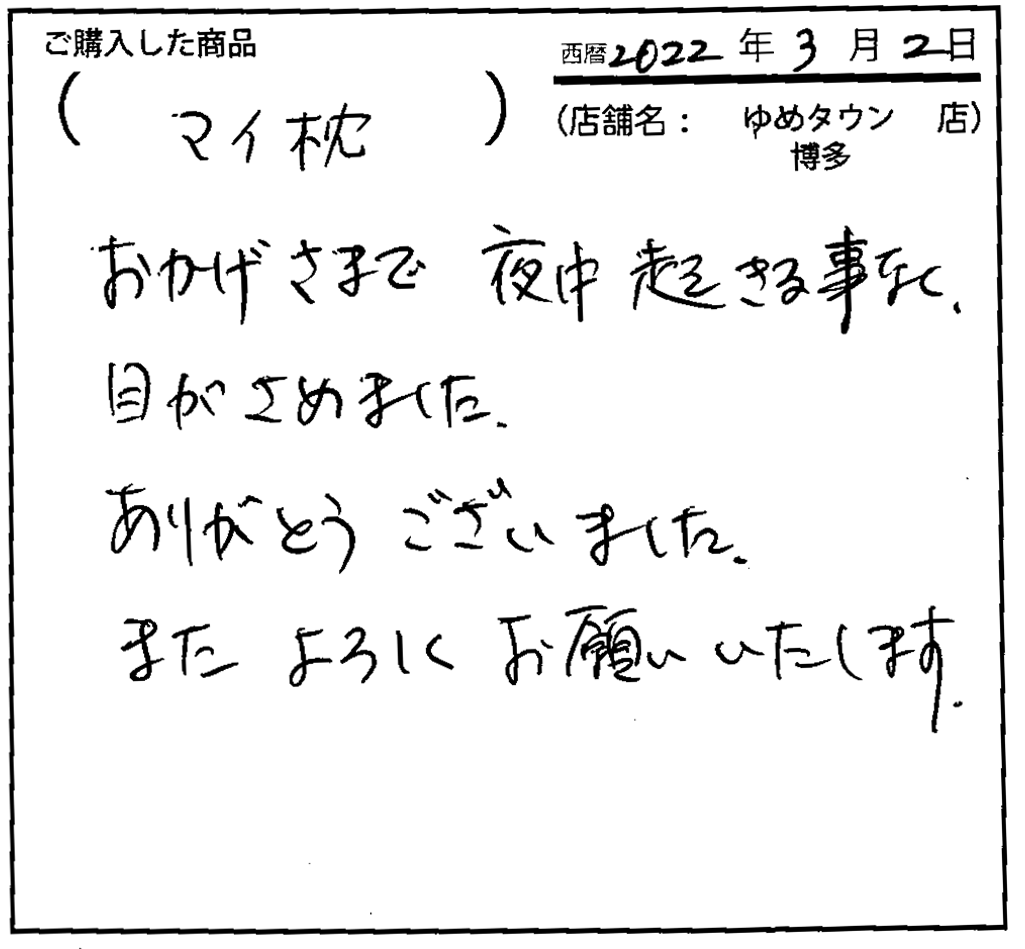 ご購入した商品
西暦2022年3月2日
(マイ枕)
(店舗名： ゆめタウン 店)
博多
おかげさまで 夜中起きる事なく、
目がさめました。
ありがとうございました。
また よろしく お願い いたします。